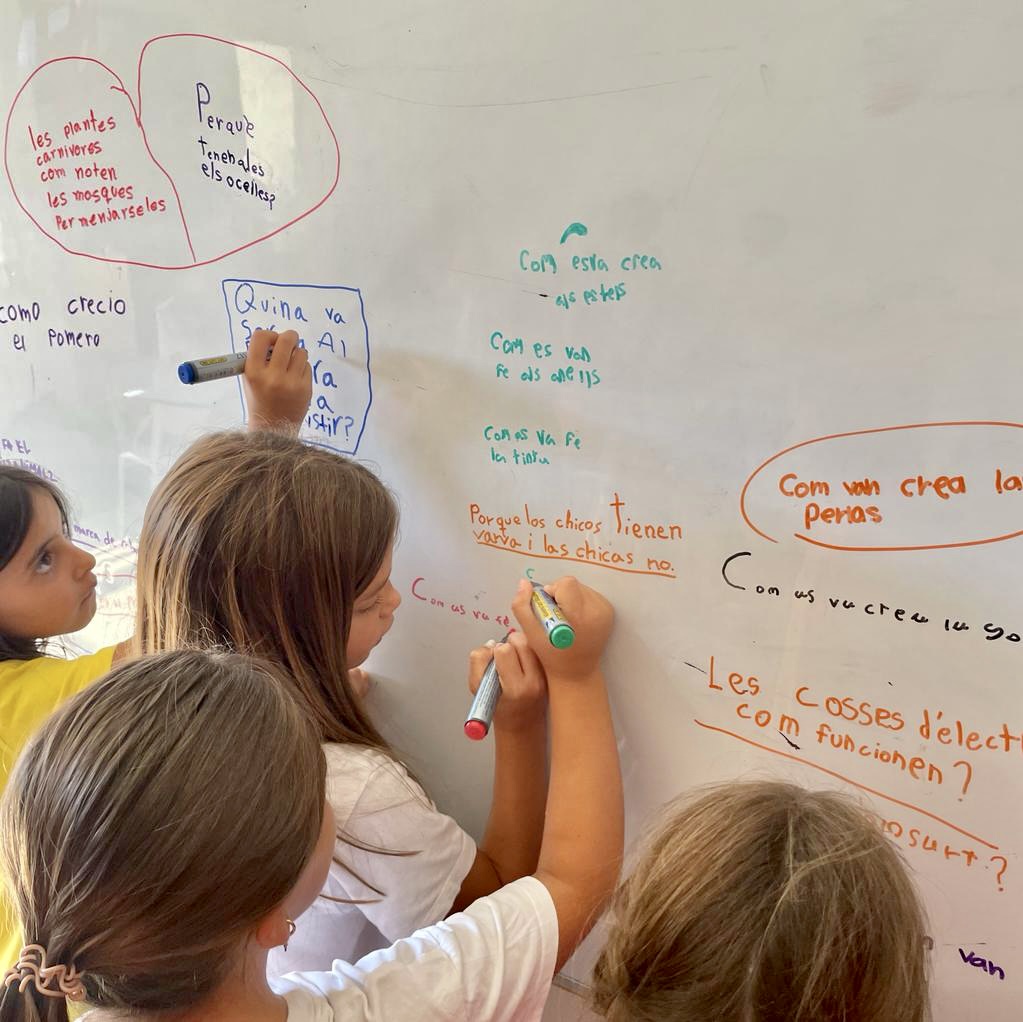 les plantes
carnivores
com noten
les mosques
per menjarseles
Perque
tenen ales
els ocelles?
como crecio
el Pomero
Quina va
Al
ra
a
istir?
Com es va crea
als estels
Com es van
Fe als anells
Com as va Fe
la tinta
Porque los chicos Tienen
varva i las chicas no.
Com as va fe
C
Com van crea la
perlas
Com as va crea la so
Les cosses d'elect
com funcionen?
surt?
van
marca de